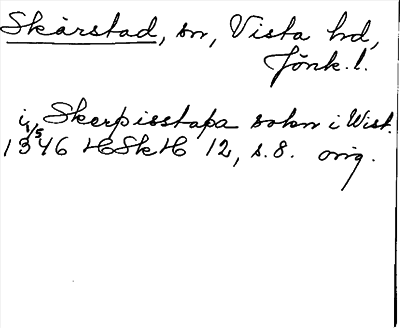 Skärstad, sn, Vista hd,
Jönk. l.
i Skerpisstaþa sokn i Wist.
1346 4/5 HSkH 12, s. 8. orig.